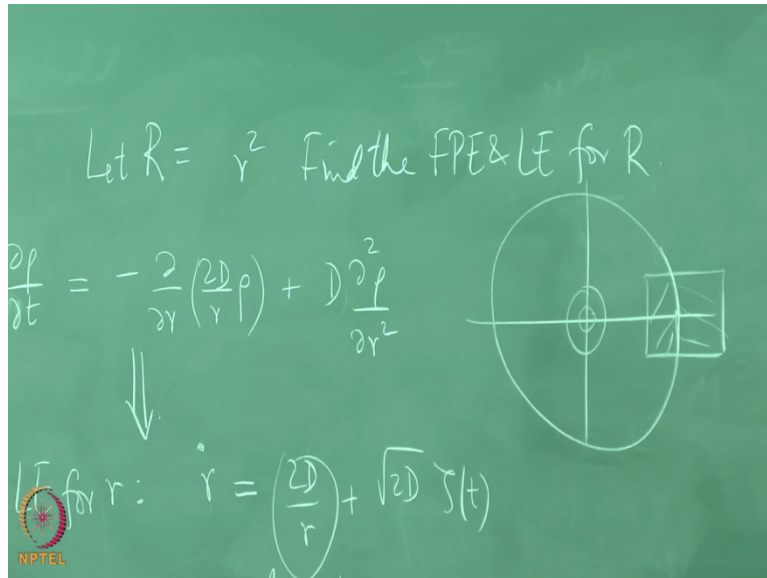 Let R = r² Find the FPE & LE for R.
∂ρ/∂t = - ∂/∂r (2D/r ρ) + D ∂²ρ/∂r²
⇓
LE for r : ṙ = (2D/r) + √2D ζ(t)
NPTEL